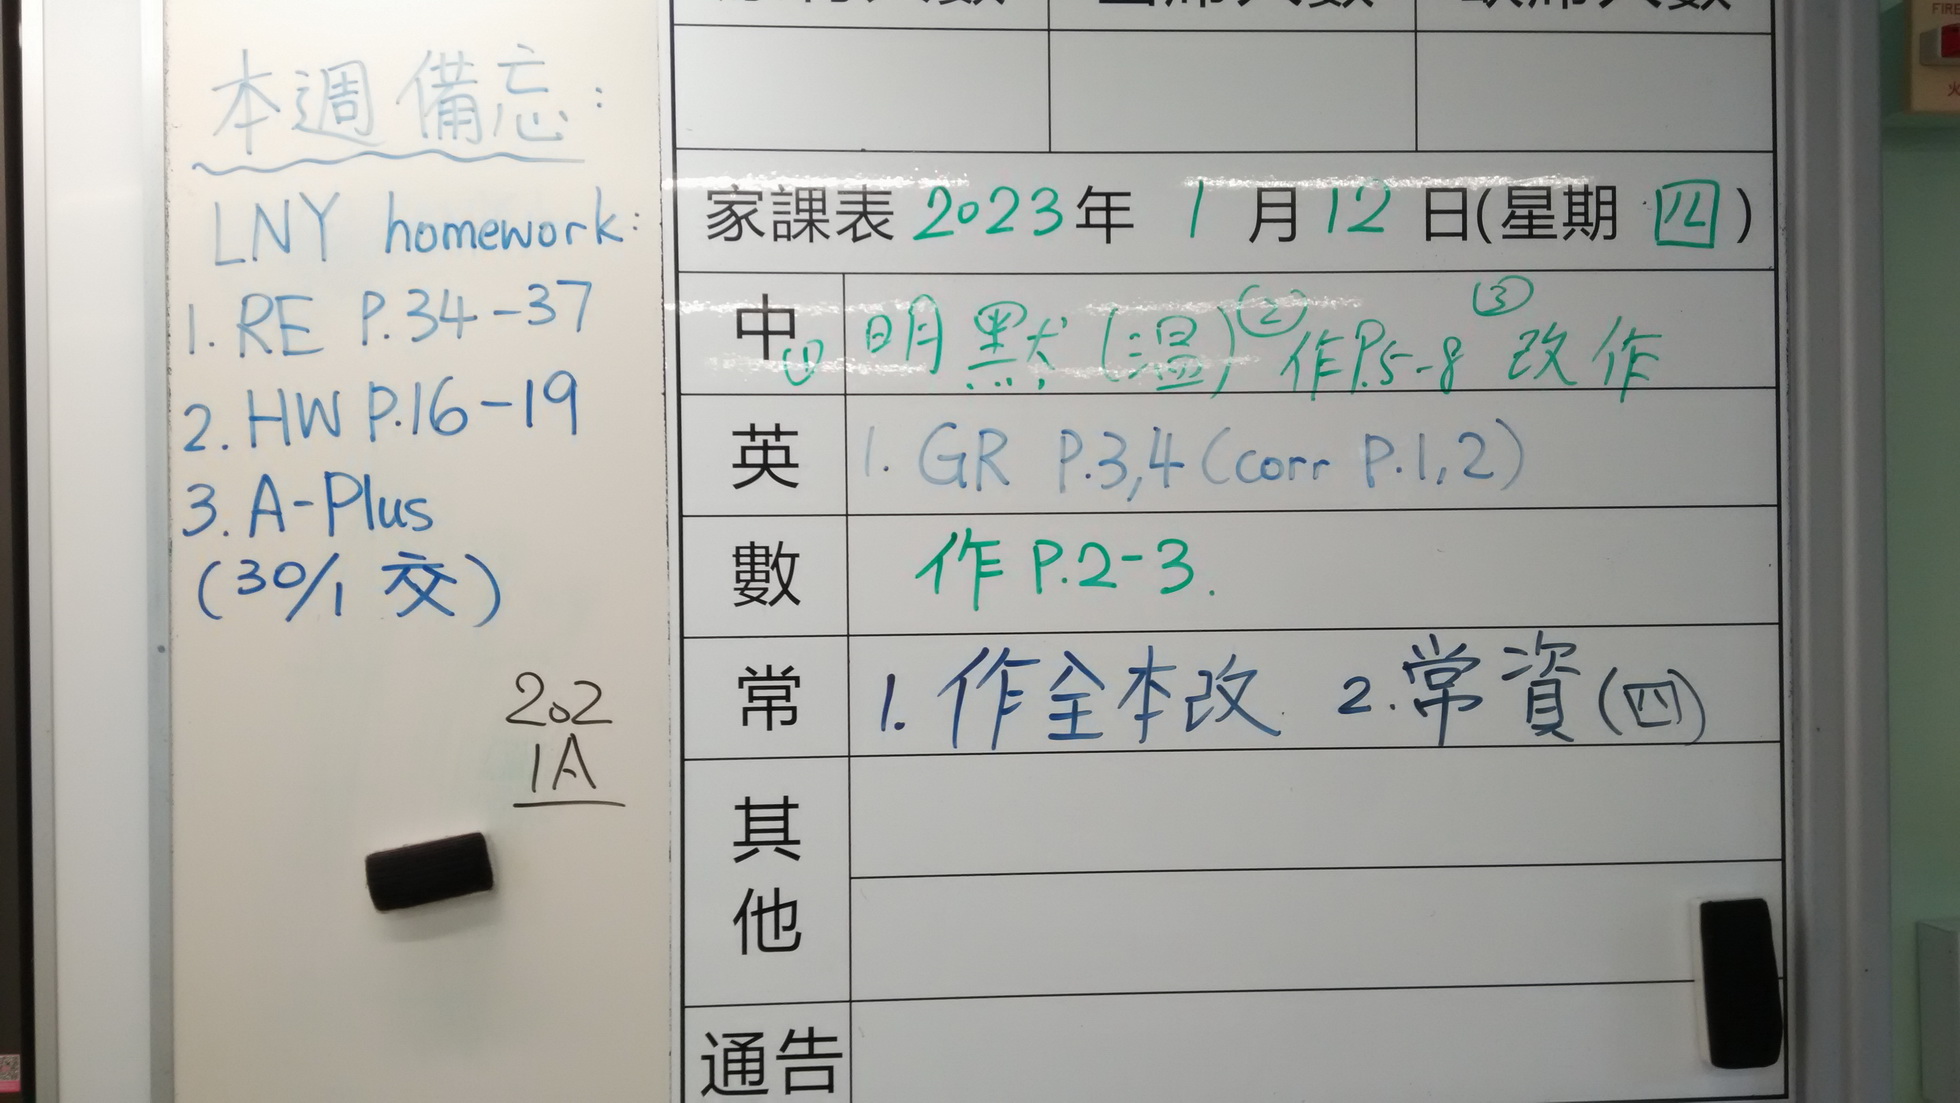 本週備忘:
LNY homework:
1. RE P.34-37
2. HW P.16-19
3. A-Plus
(30/1 交)
202
1A
家課表 2023年 1月12日(星期 四)
中 ① 明默(溫) ② 作P.5-8 ③ 改作
英 1. GR P.3,4 (corr P.1,2)
數 作 P.2-3.
常 1. 作全本改 2. 常資(四)
其他
通告
FIRE
火